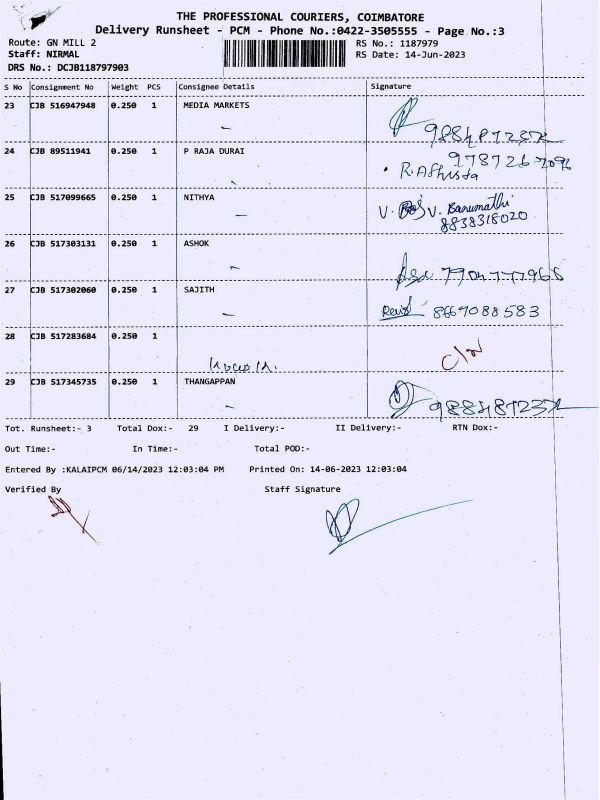 THE PROFESSIONAL COURIERS, COIMBATORE
Delivery Runsheet - PCM - Phone No.:0422-3505555 - Page No.:3
Route: GN MILL 2 RS No.: 1187979
Staff: NIRMAL RS Date: 14-Jun-2023
DRS No.: DCJB118797903
S No Consignment No Weight PCS Consignee Details Signature
23 CJB 516947948 0.250 1 MEDIA MARKETS
24 CJB 89511941 0.250 1 P RAJA DURAI
25 CJB 517099665 0.250 1 NITHYA
V. Banumathi
8838318020
26 CJB 517303131 0.250 1 ASHOK
27 CJB 517302060 0.250 1 SAJITH
8667088583
28 CJB 517283684 0.250 1
29 CJB 517345735 0.250 1 THANGAPPAN
Tot. Runsheet:- 3 Total Dox:- 29 I Delivery:- II Delivery:- RTN Dox:-
Out Time:- In Time:- Total POD:-
Entered By :KALAIPCM 06/14/2023 12:03:04 PM Printed On: 14-06-2023 12:03:04
Verified By Staff Signature